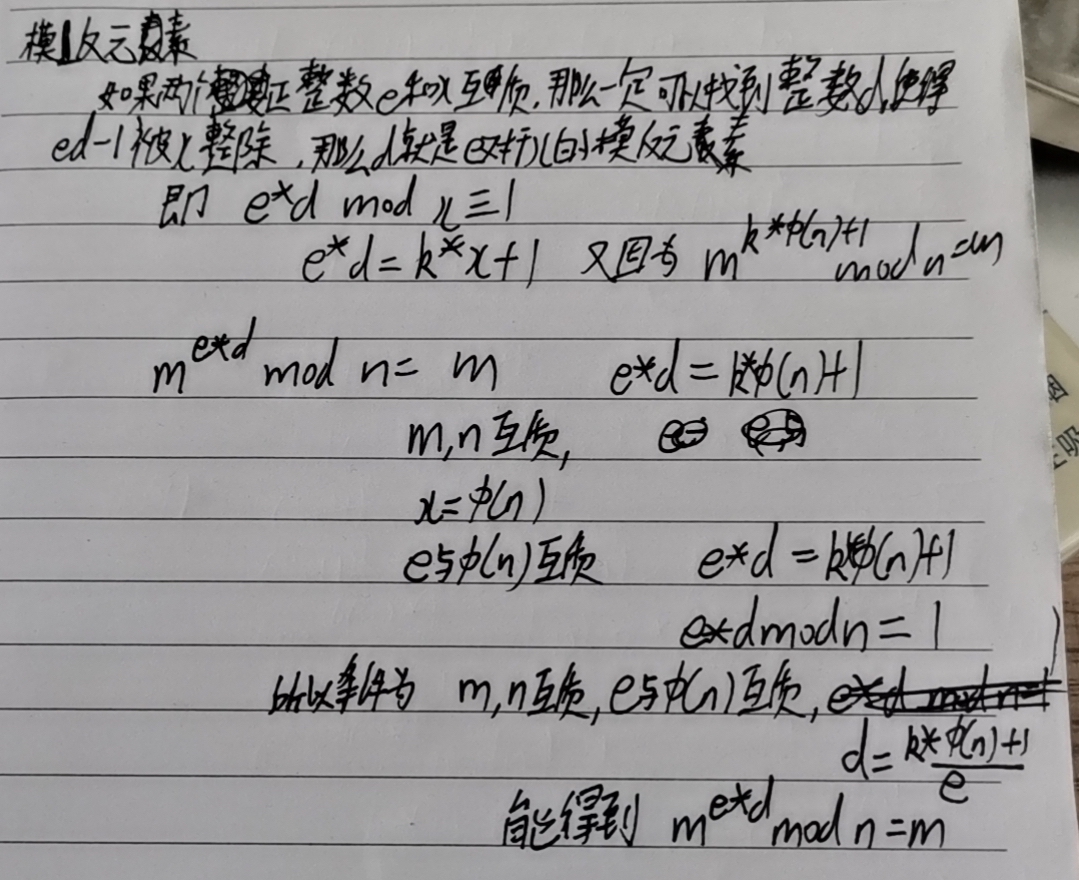 模反元素
如果两个正整数e和x互质,那么一定可以找到整数d,使得
ed-1被x整除,那么d就是e对于x的模反元素
即 e*d mod x≡1
e*d=k*x+1 又因为 m^{k*φ(n)+1} mod n=m
m^{e*d} mod n= m e*d=k*φ(n)+1
m,n互质,
x=φ(n)
e与φ(n)互质 e*d=k*φ(n)+1
e*d mod n=1
所以条件为 m,n互质,e与φ(n)互质,
d=\frac{k*φ(n)+1}{e}
能得到 m^{e*d} mod n=m